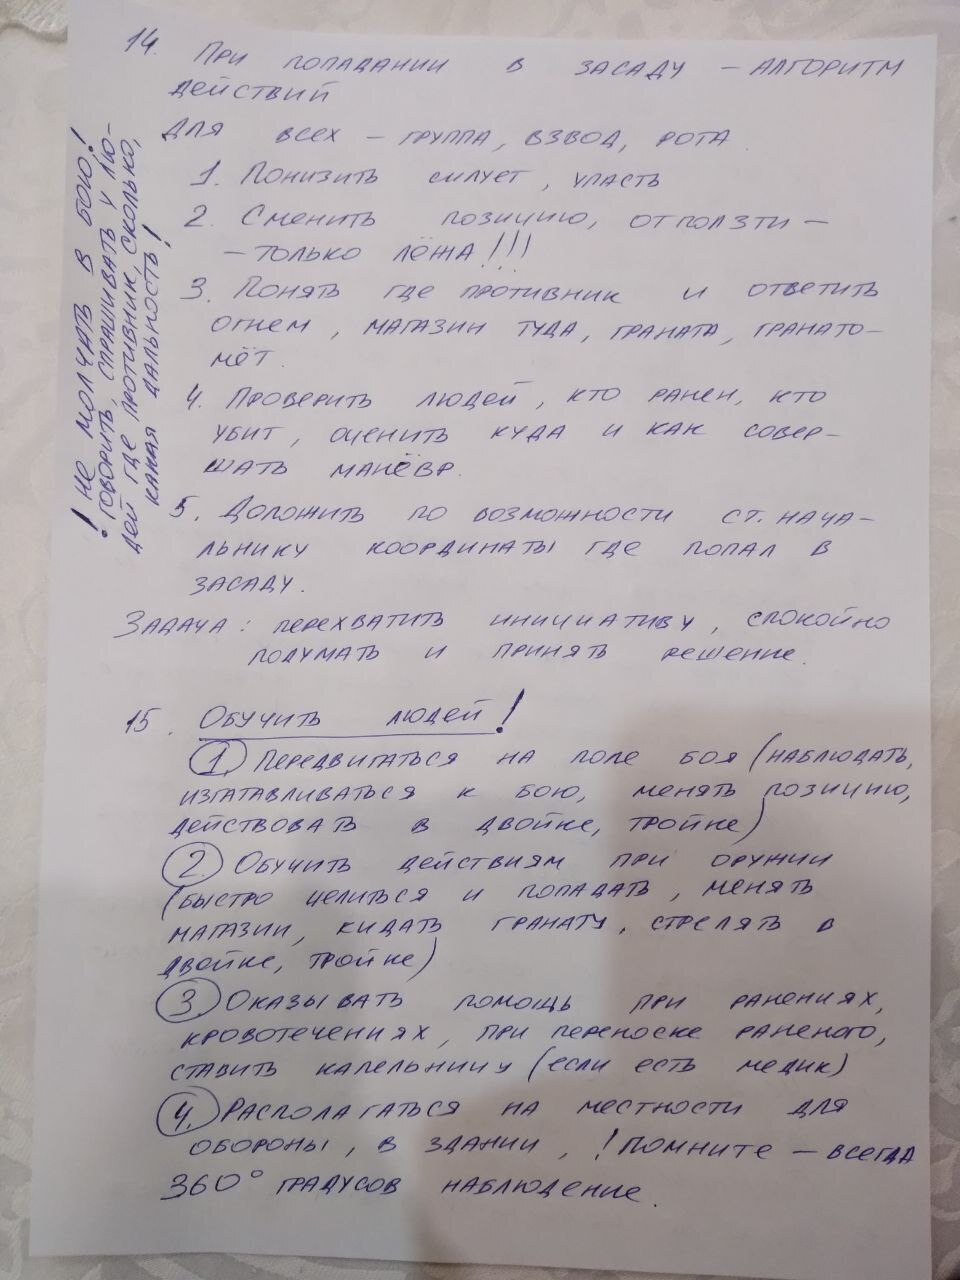 14. При попадании в засаду – алгоритм
действий
для всех – группа, взвод, рота.
1. Понизить силует, упасть
2. Сменить позицию, отползти –
– только лёжа!!!
3. Понять где противник и ответить
огнем, магазин туда, граната, гранато-
мёт.
4. Проверить людей, кто ранен, кто
убит, оценить куда и как совер-
шать манёвр.
5. Доложить по возможности ст. нача-
льнику координаты где попал в
засаду.
Задача: перехватить инициативу, спокойно
подумать и принять решение.
! Не молчать в бою!
! говорить, спрашивать у лю-
дей где противник, сколько,
какая дальность!
15. Обучить людей!
1. Передвигаться на поле боя (наблюдать,
изгатавливаться к бою, менять позицию,
действовать в двойке, тройке)
2. Обучить действиям при оружии
(быстро целиться и попадать, менять
магазин, кидать гранату, стрелять в
двойке, тройке)
3. Оказывать помощь при ранениях,
кровотечениях, при переноске раненого,
ставить капельницу (если есть медик)
4. Располагаться на местности для
обороны, в здании, ! Помните – всегда
360° градусов наблюдение.